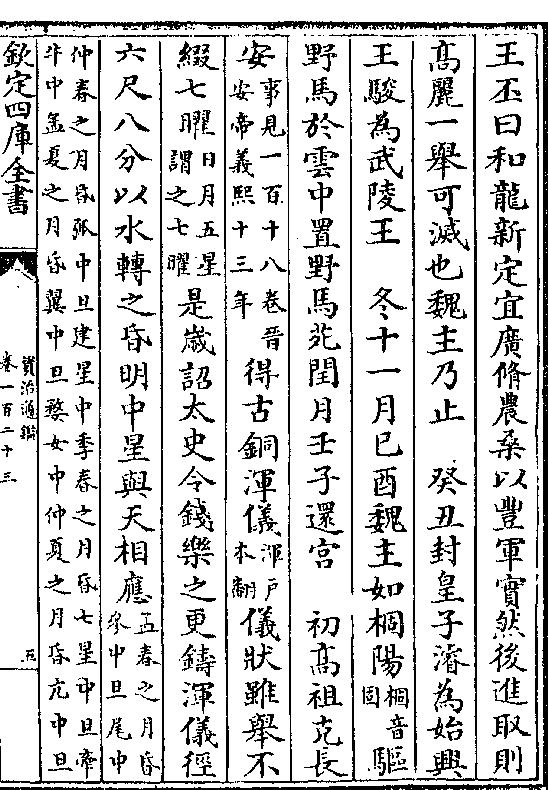 王丕曰和龍新定宜廣脩農桑以豐軍實然後進取則
髙麗一舉可滅也魏主乃止　癸丑封皇子濬為始興
王駿為武陵王　冬十一月已酉魏主如桐陽桐音固驅
野馬於雲中置野馬苑閏月壬子還宫　初髙祖克長
安事見一百十八卷晉安帝義熙十三年得古銅渾儀渾户本翻儀狀雖舉不
綴七曜日月五星謂之七曜是歲詔太史令錢樂之更鑄渾儀徑
六尺八分以水轉之昏明中星與天相應孟春之月昏參中旦尾中
仲春之月昏弧中旦建星中季春之月昏七星中旦牽
牛中孟夏之月昏翼中旦婺女中仲夏之月昏亢中旦
欽定四庫全書
資治通鑑
卷一百二十三
五